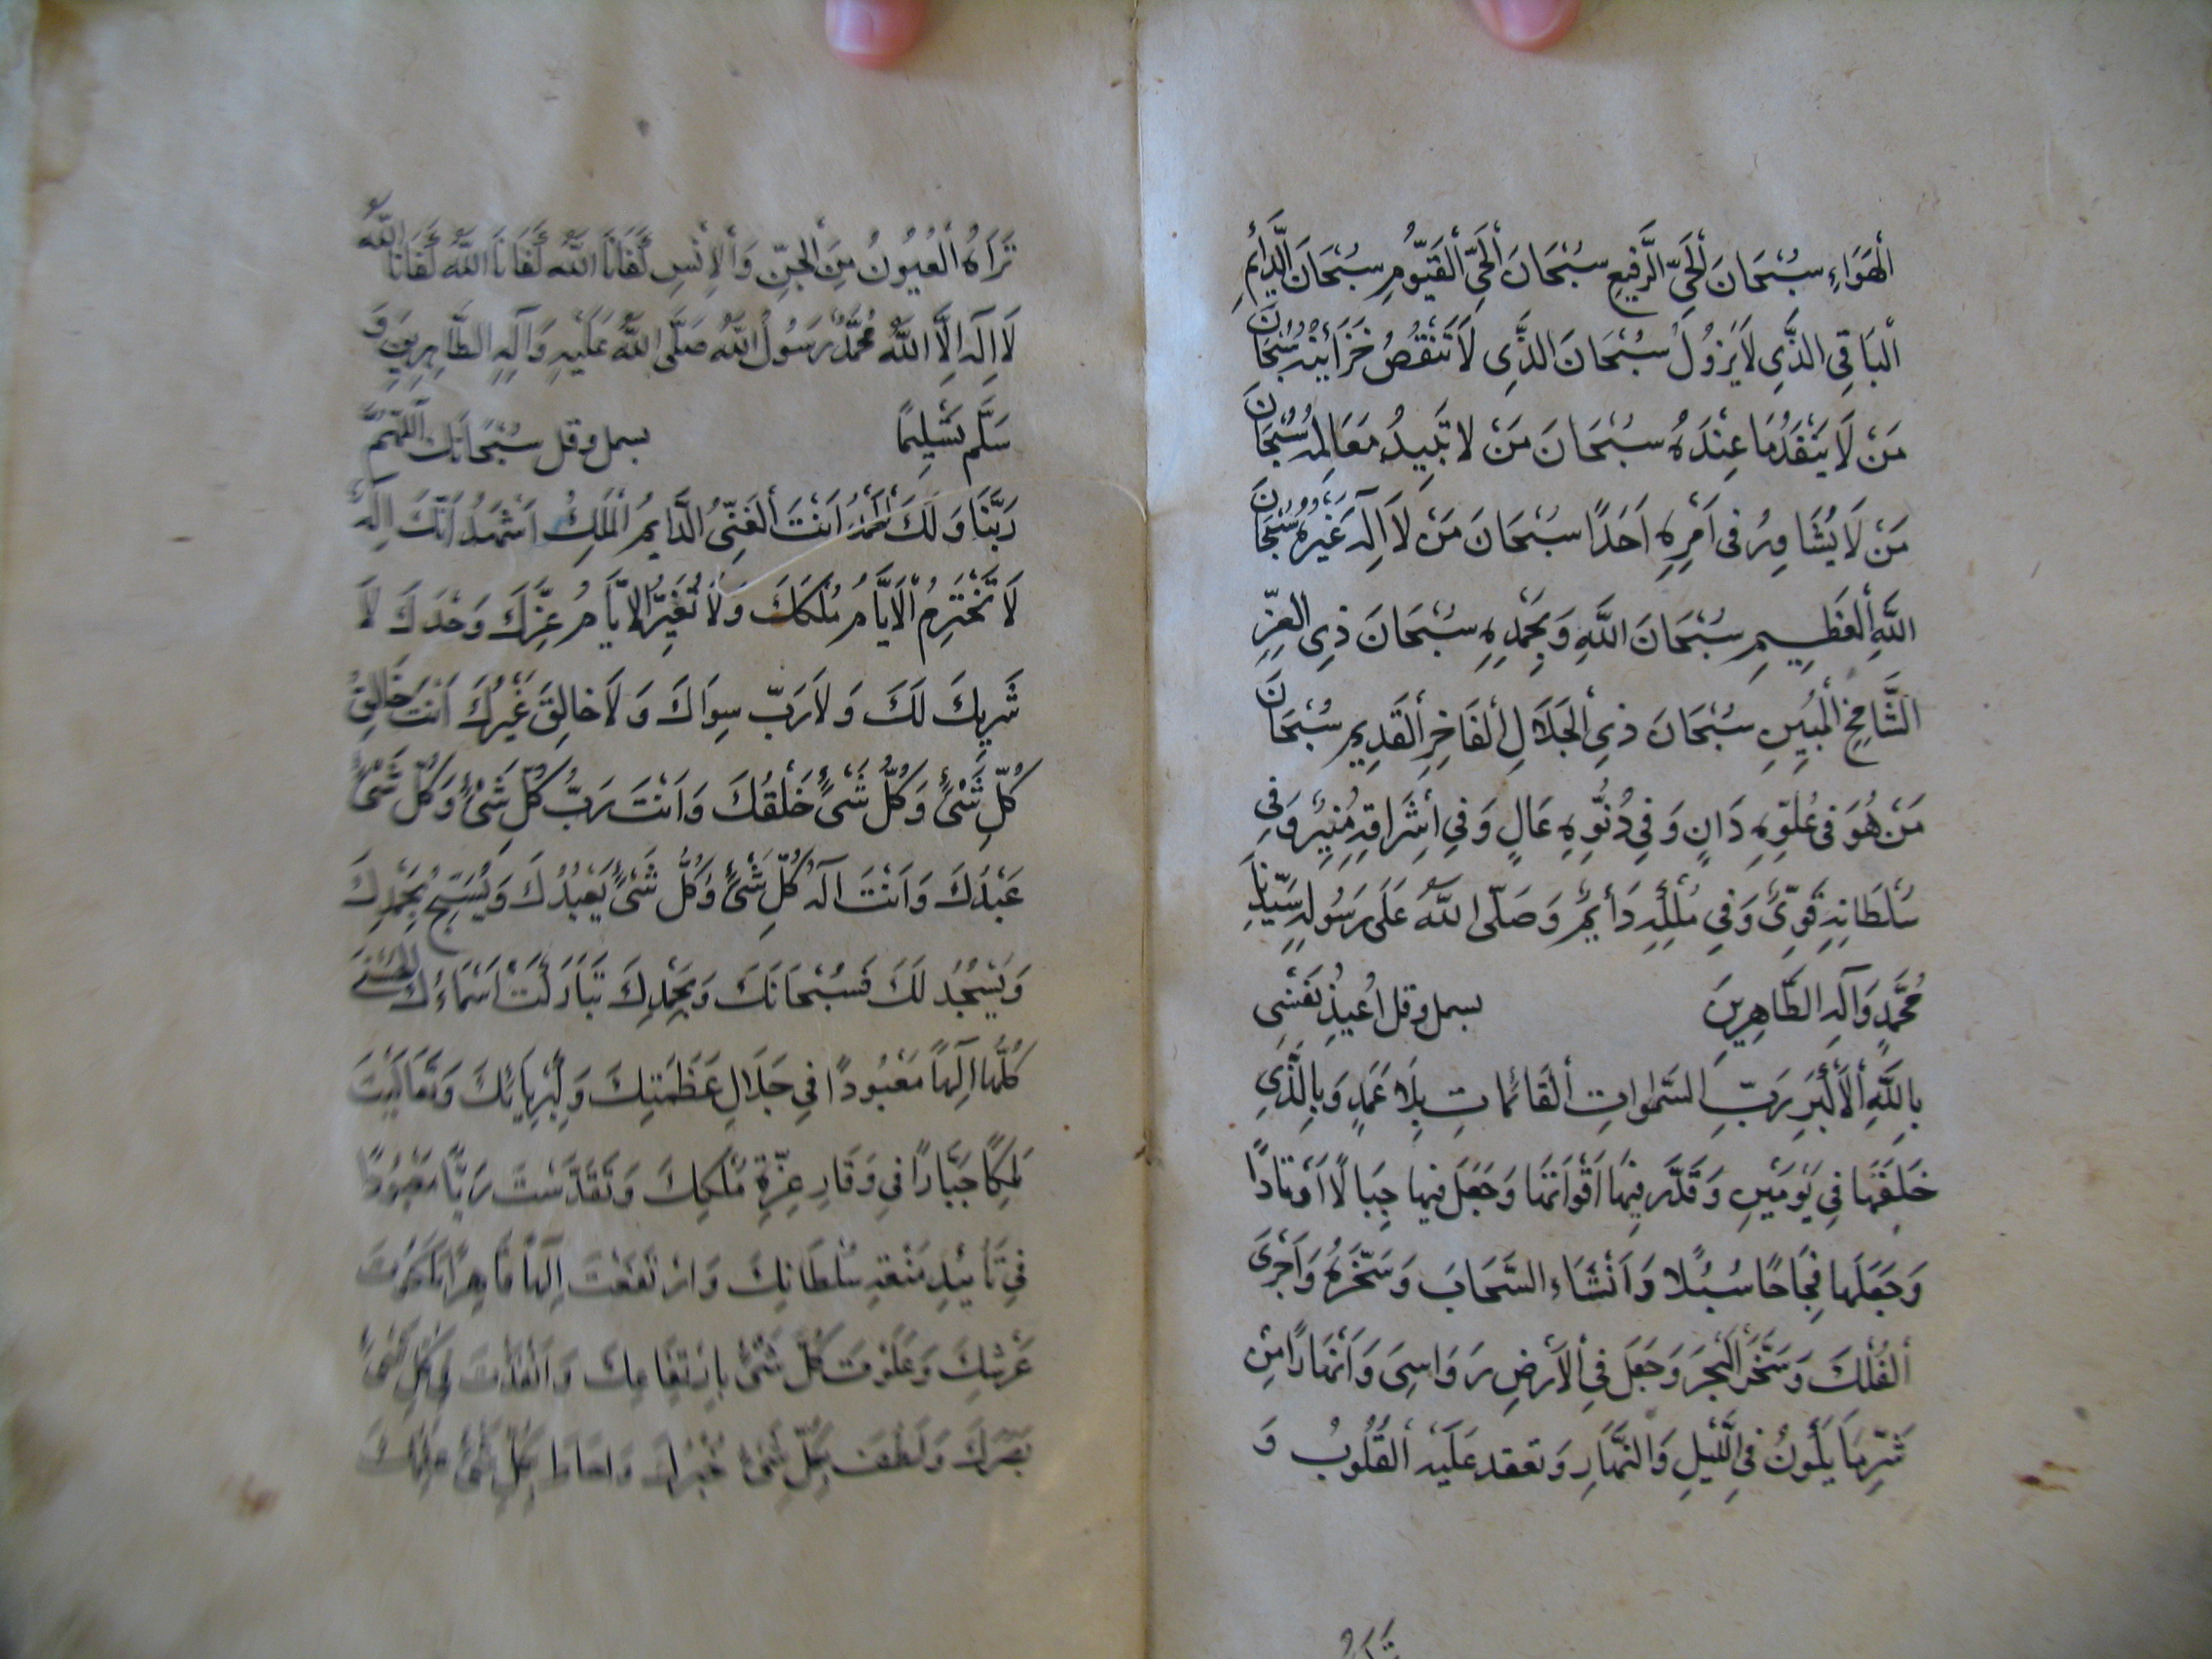 الْهَوَاءِ سُبْحَانَ الْحَيِّ الرَّفِيعِ سُبْحَانَ الْحَيِّ الْقَيُّومِ سُبْحَانَ الدَّائِمِ
الْبَاقِي الَّذِي لَا يَزُولُ سُبْحَانَ الَّذِي لَا تَنْقُصُ خَزَائِنُهُ سُبْحَانَ
مَنْ لَا يَنْفَدُ مَا عِنْدَهُ سُبْحَانَ مَنْ لا تَبِيدُ مَعَالِمُهُ سُبْحَانَ
مَنْ لَا يُشَاوِرُ فى اَمْرِهِ اَحَدًا سُبْحَانَ مَنْ لَا اِلَهَ غَيْرُهُ سُبْحَانَ
اللَّهِ الْعَظِيمِ سُبْحَانَ اللَّهِ وَبِحَمْدِهِ سُبْحَانَ ذِى الْعِزِّ
الشَّامِخِ الْمُبِينِ سُبْحَانَ ذِي الْجَلَالِ الْفَاخِرِ الْقَدِيمِ سُبْحَانَ
مَنْ هُوَ فى عُلُوِّهِ دَانٍ وَفِي دُنُوِّهِ عَالٍ وَفِي اِشْرَاقِهِ مُنِيرٌ وَفِي
سُلْطَانِهِ قَوِيٌّ وَفِي مُلْكِهِ دَائِمٌ وَصَلَّى اللَّهُ عَلَى رَسُولِهِ سَيِّدِنَا
مُحَمَّدٍ وَآلِهِ الطَّاهِرِينَ بسمل وقل اُعِيذُ نَفْسِي
بِاللَّهِ الْاَكْبَرِ رَبِّ السَّمَوَاتِ الْقَائِمَاتِ بِلَا عَمَدٍ وَبِالَّذِي
خَلَقَهَا فِي يَوْمَيْنِ وَقَدَّرَ فِيهَا اَقْوَاتَهَا وَجَعَلَ فِيهَا جِبَالًا اَوْتَادًا
وَجَعَلَهَا فِجَاجًا سُبُلًا وَاَنْشَاءَ السَّحَابَ وَسَخَّرَهُ وَاَجْرَى
الْفُلْكَ وَسَخَّرَ الْبَحْرَ وَجَعَلَ فِي الْاَرْضِ رَوَاسِيَ وَاَنْهَارًا مِنْ
شَرِّ مَا يَكُونُ فِي اللَّيْلِ وَالنَّهَارِ وَتعقد عَلَيْهِ الْقُلُوبُ وَ
تَرَاهُ
تَرَاهُ الْعُيُونُ مِنَ الْجِنِّ وَالْاِنْسِ كَفَانَا اللَّهُ كَفَانَا اللَّهُ كَفَانَا اللَّهُ
لَا اِلَهَ اِلَّا اللَّهُ مُحَمَّدٌ رَسُولُ اللَّهِ صَلَّى اللَّهُ عَلَيْهِ وَآلِهِ الطَّاهِرِينَ وَ
سَلَّمَ تَسْلِيمًا بسمل وقل سُبْحَانَكَ اللَّهُمَّ
رَبَّنَا وَلَكَ الْحَمْدُ اَنْتَ الْغَنِيُّ الدَّايِمُ الْمَلِكُ اَشْهَدُ اَنَّكَ اِلَهٌ
لَا تَخْتَرِمُ الْاَيَّامُ مُلْكَكَ وَلَا تُغَيِّرُ الْاَيَّامُ عِزَّكَ وَحْدَكَ لَا
شَرِيكَ لَكَ وَلَا رَبَّ سِوَاكَ وَلَا خَالِقَ غَيْرُكَ اَنْتَ خَالِقُ
كُلِّ شَيْءٍ وَكُلُّ شَيْءٍ خَلْقُكَ وَاَنْتَ رَبُّ كُلِّ شَيْءٍ وَكُلُّ شَيْءٍ
عَبْدُكَ وَاَنْتَ آلَهُ كُلِّ شَيْءٍ وَكُلُّ شَيْءٍ يَعْبُدُكَ وَيُسَبِّحُ بِحَمْدِكَ
وَيَسْجُدُ لَكَ فَسُبْحَانَكَ وَبِحَمْدِكَ تَبَارَكَتْ اَسْمَاءُكَ الْحُسْنَى
كُلُّهَا اِلَهًا مَعْبُودًا فِي جَلَالِ عَظَمَتِكَ وَكِبْرِيَائِكَ وَتَعَالَيْتَ
مَلِكًا جَبَّارًا فِي وَقَارِ عِزَّةِ مُلْكِكَ وَتَقَدَّسْتَ رَبًّا مَعْبُودًا
فِي تَأْيِيدِ مَنْعَةِ سُلْطَانِكَ وَارْتَفَعْتَ اِلَهًا قَاهِرًا فَوْقَ مَلَكُوتِ
عَرْشِكَ وَعَلَوْتَ كُلَّ شَيْءٍ بِارْتِفَاعِكَ وَاَنْفَذْتَ فِي كُلِّ شَيْءٍ
بَصَرَكَ وَلَطُفَ بِكُلِّ شَيْءٍ خُبْرُكَ وَاَحَاطَ بِكُلِّ شَيْءٍ عِلْمُكَ